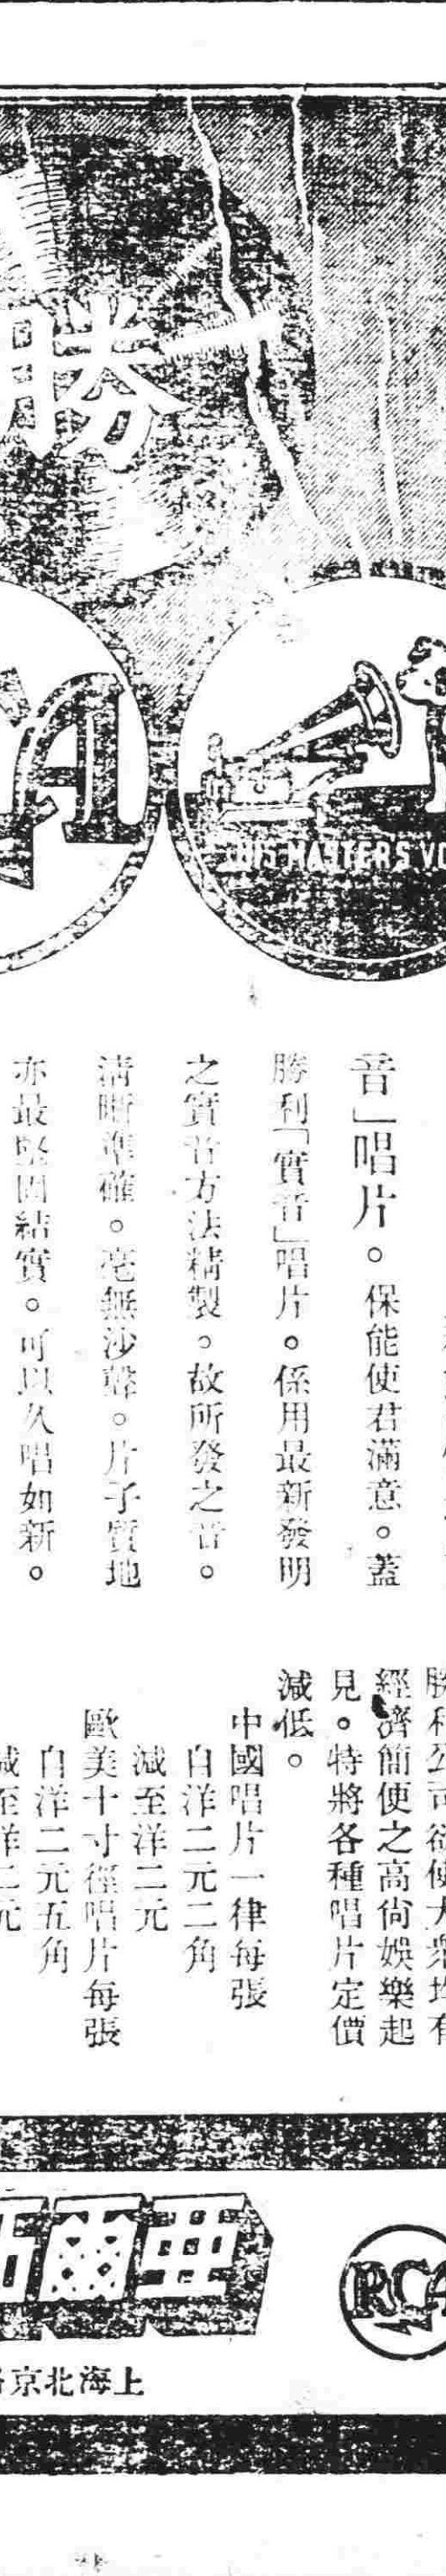 勝
HIS MASTERS VO
音」唱片。保能使君滿意。蓋
勝利「實音」唱片。係用最新發明
之實音方法精製。故所發之音。
清晰準確。毫無沙聲。片子質地
亦最堅固結實。可以久唱如新。
勝利公司欲使大衆均有
經濟簡便之高尚娛樂起
見。特將各種唱片定價
減低。
中國唱片一律每張
自洋二元二角
減至洋二元
歐美十寸徑唱片每張
自洋二元五角
減至洋二元
RCA
亞爾
上海北京